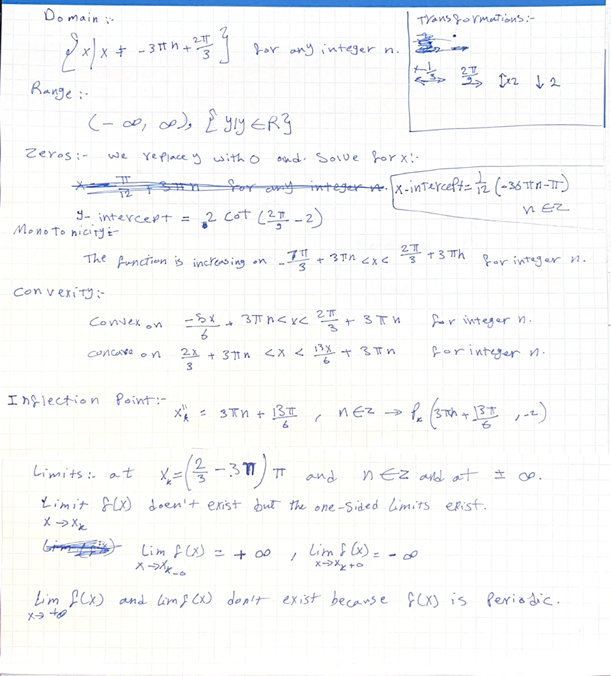 Domain :-
{x|x ≠ -3πn + 2π/3} for any integer n.
transformations:-
2π/9 ↕x2 ↓2
Range :-
(-∞, ∞), {y|y ∈ R}
Zeros:- we replace y with 0 and solve for x:-
x-intercept = 1/12 (-36πn-π)
n ∈ Z
y-intercept = 2 cot (2π/9 - 2)
Monotonicity:-
The function is increasing on -7π/3 + 3πn < x < 2π/3 + 3πn for integer n.
Convexity:-
Convex on -5x/6 + 3πn < x < 2π/3 + 3πn for integer n.
concave on 2x/3 + 3πn < x < 13x/6 + 3πn for integer n.
Inflection Point:-
x"ₖ = 3πn + 13π/6 , n ∈ Z → Pₖ (3πn + 13π/6 , -2)
Limits:- at Xₖ = (2/3 - 3n) π and n ∈ Z and at ± ∞.
Limit f(x) doen't exist but the one-sided limits exist.
x → xₖ
Lim f(x) = +∞ , Lim f(x) = -∞
x → xₖ-0 x → xₖ+0
Lim f(x) and lim f(x) don't exist because f(x) is Periodic.
x → +∞